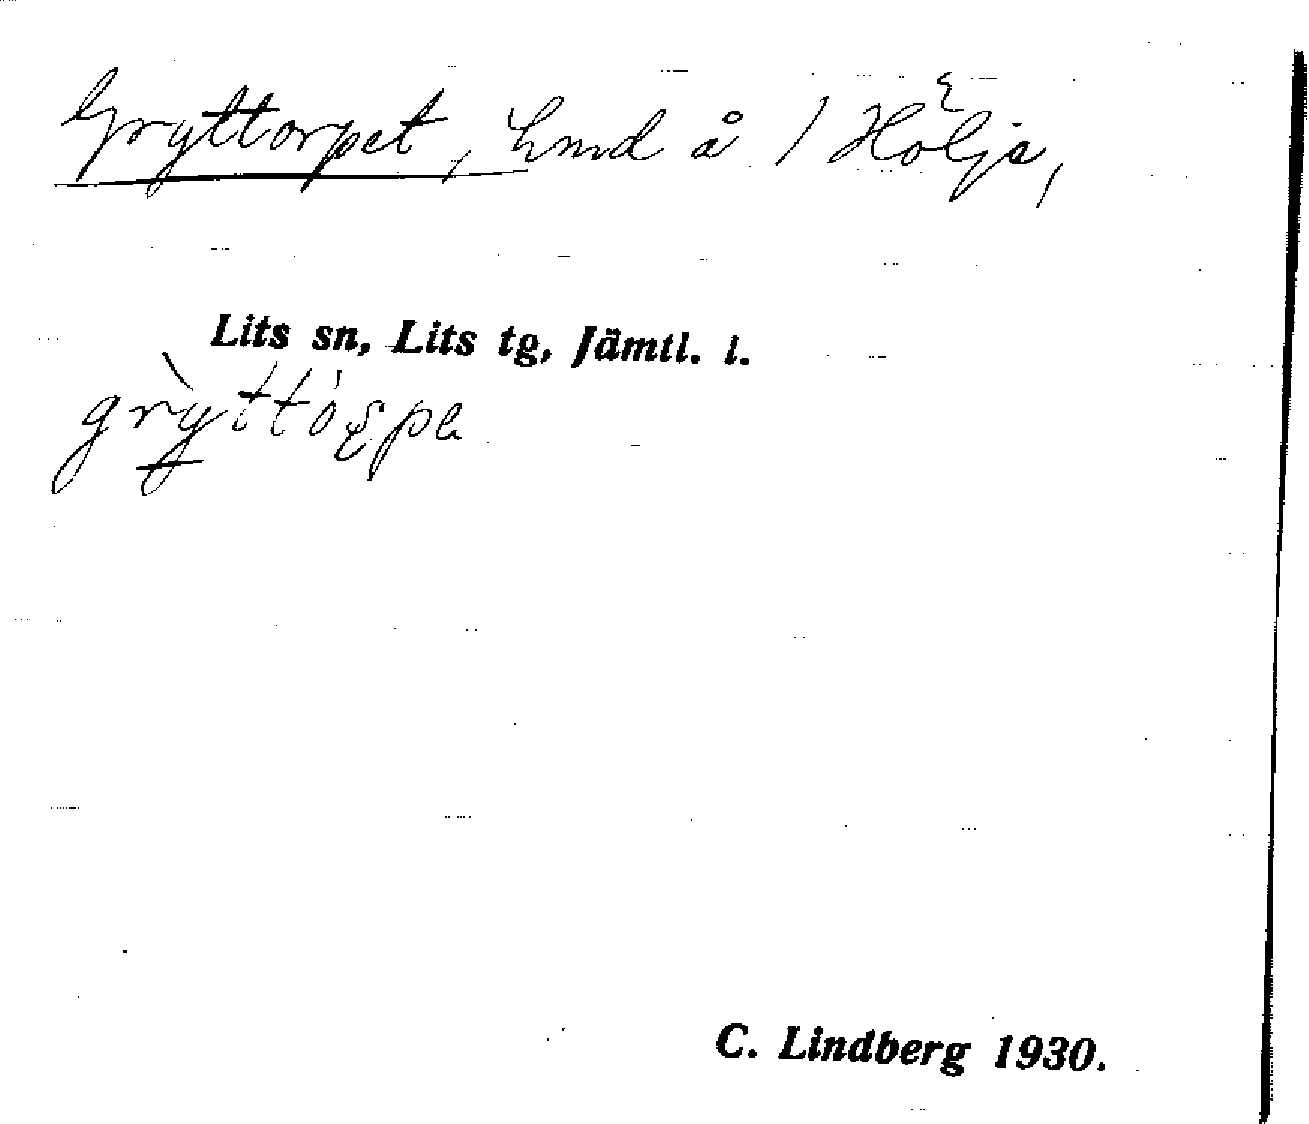 Gryttorpet, hmd å 1 Hölje,
Lits sn, Lits tg, Jämtl. l.
C. Lindberg 1930.